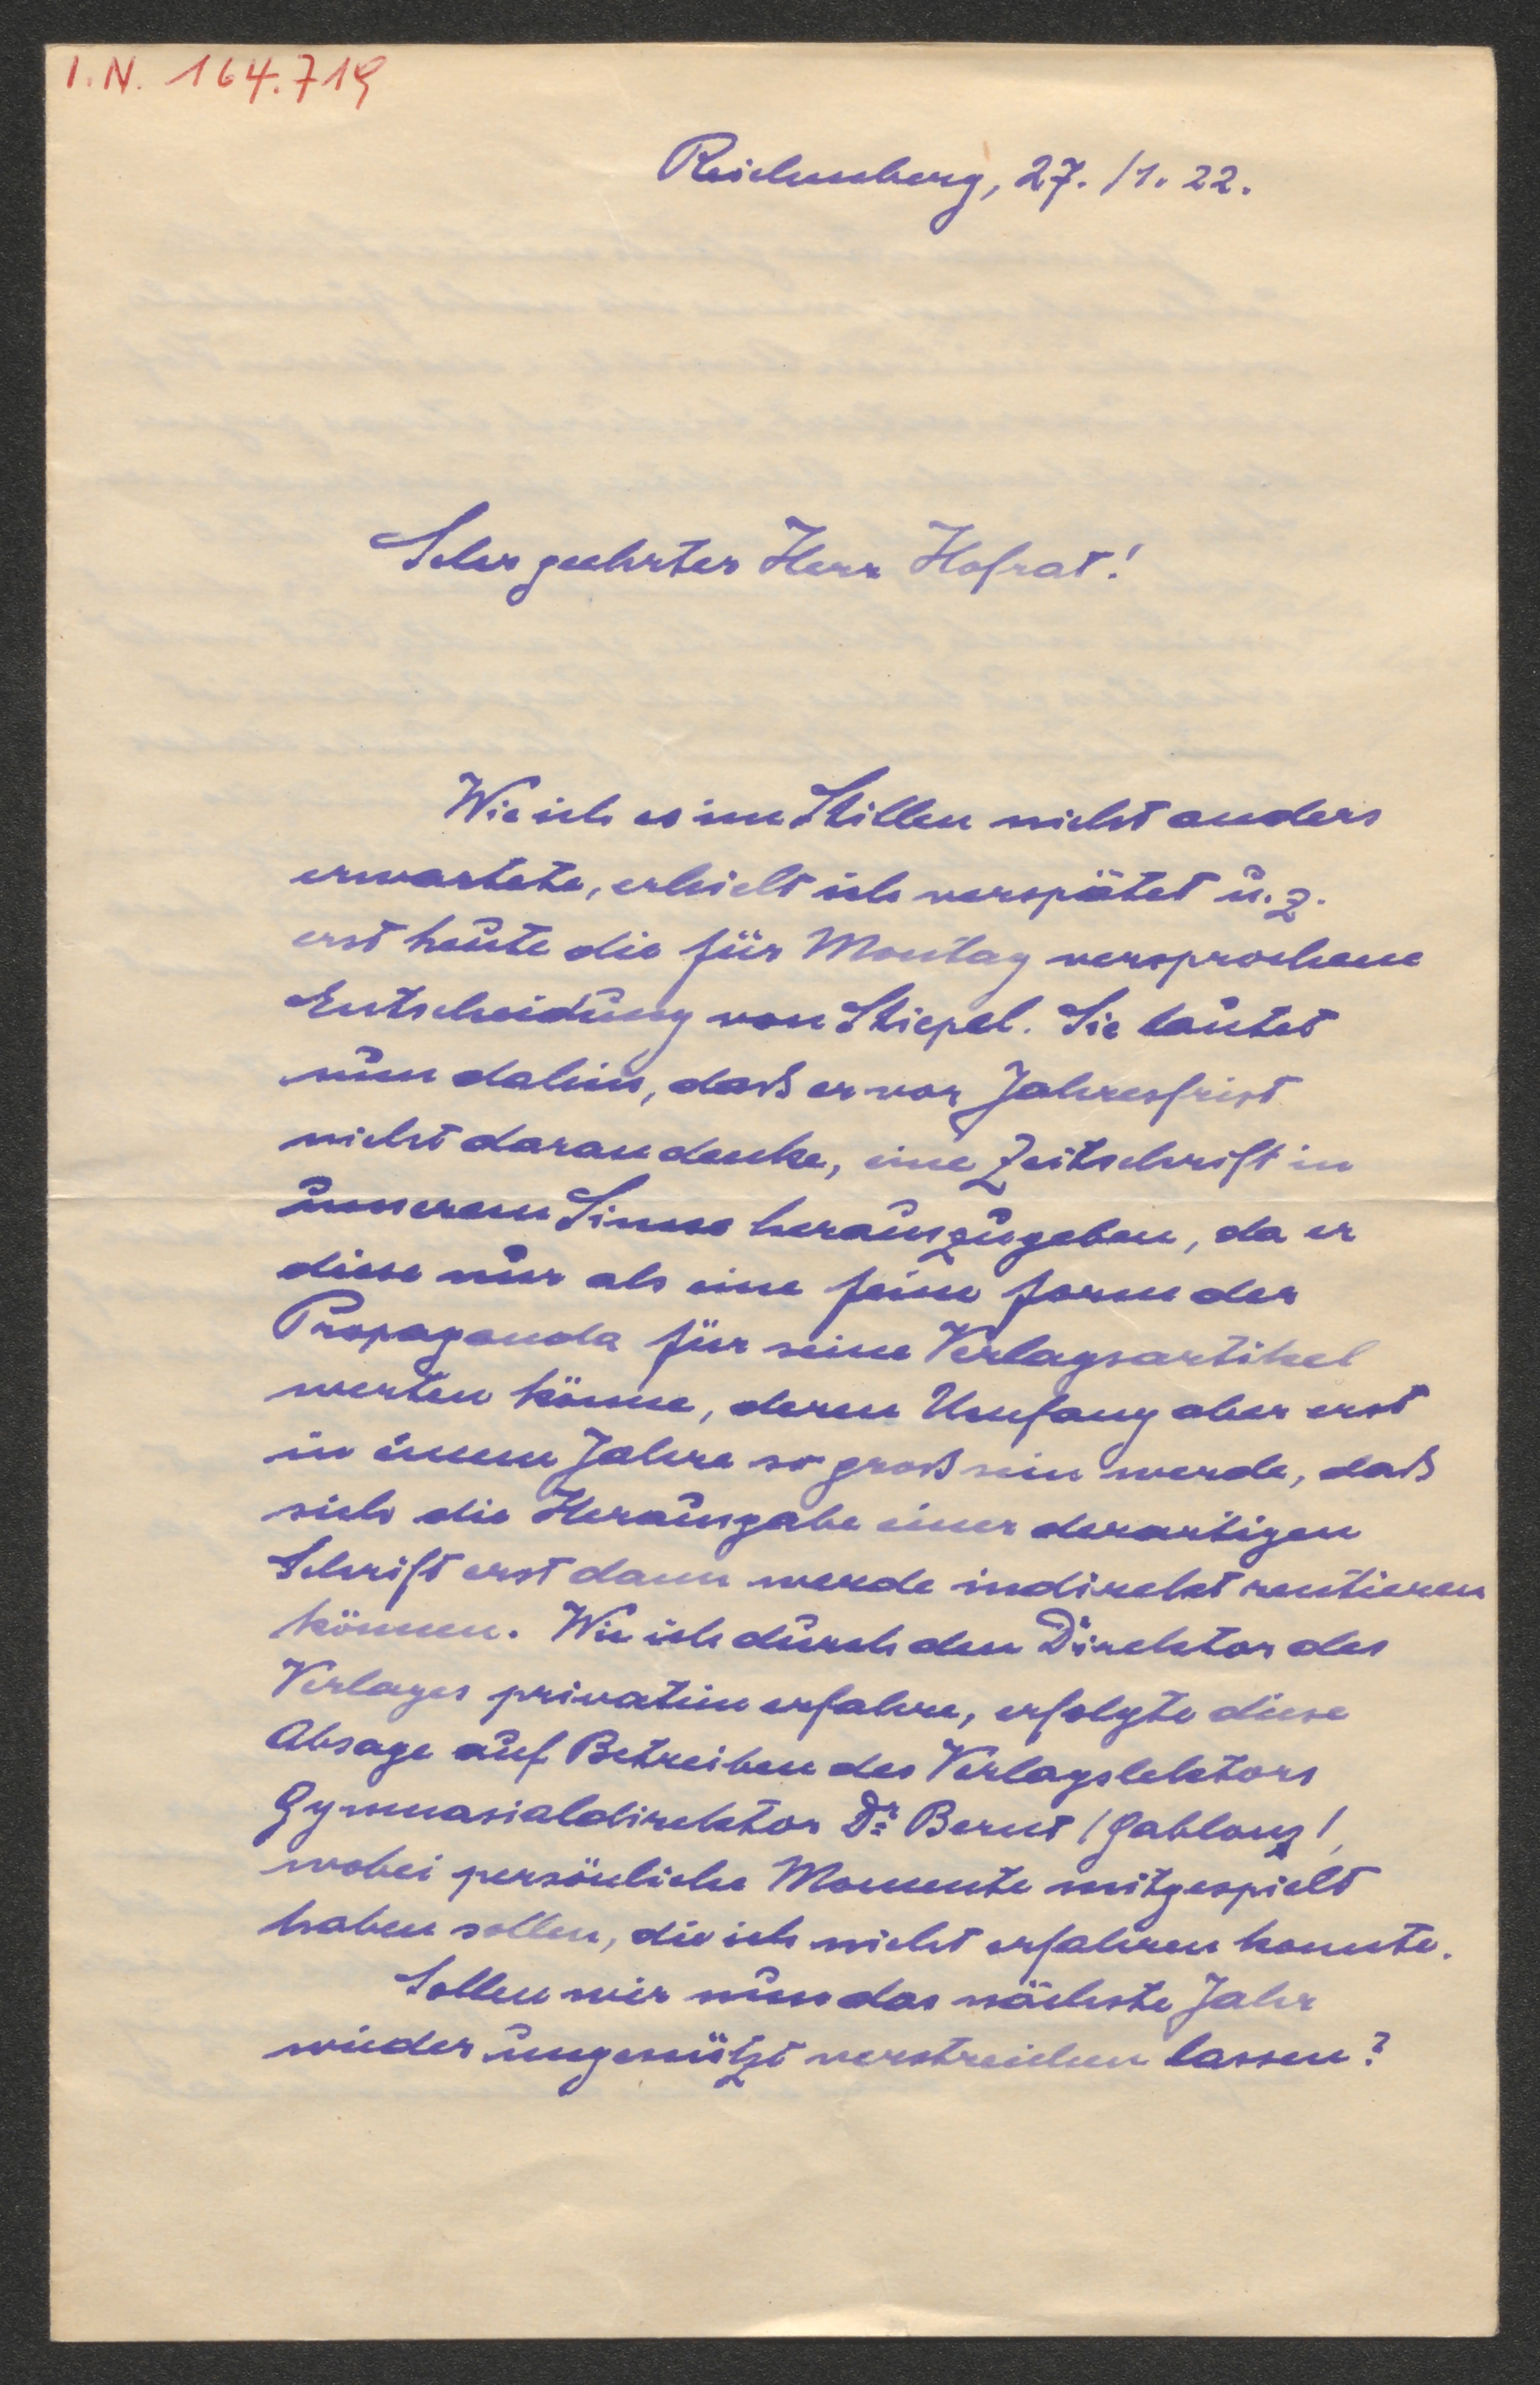 I.N. 164.719
Reichenberg, 27./1. 22.
Sehr geehrter Herr Hofrat!
Wie ich es im Stillen nicht anders
erwartete, erhielt ich verspätet u. z.
erst heute die für Montag versprochene
Entscheidung von Stiepel. Sie lautet
nun dahin, daß er vor Jahresfrist
nicht daran denke, eine Zeitschrift in
unserem Sinne herauszugeben, da er
diese nur als eine feine Form der
Propaganda für seine Verlagsartikel
werten könne, deren Umfang aber erst
in einem Jahre so groß sein werde, daß
sich die Herausgabe einer derartigen
Schrift erst dann werde indirekt rentieren
können. Wie ich durch den Direktor des
Verlages privatim erfahre, erfolgte diese
Absage auf Betreiben des Verlagslektors
Gymnasialdirektor Dr. Bernt /Gablonz/,
wobei persönliche Momente mitgespielt
haben sollen, die ich nicht erfahren konnte.
Sollen wir nun das nächste Jahr
wieder ungenützt verstreichen lassen?